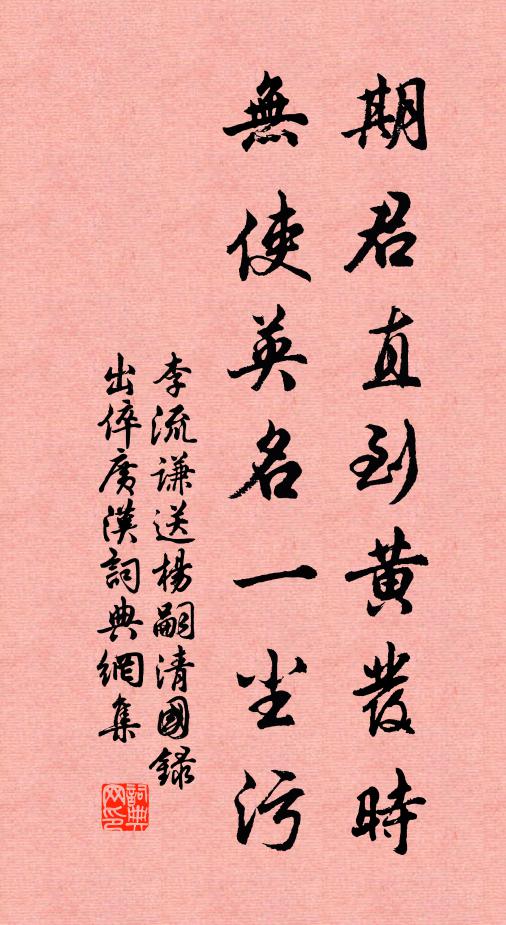 期君直到黄發時
無使英名一尘污
李流谦送楊嗣清國錄
出倅廣漢詞典網集
詞典网印